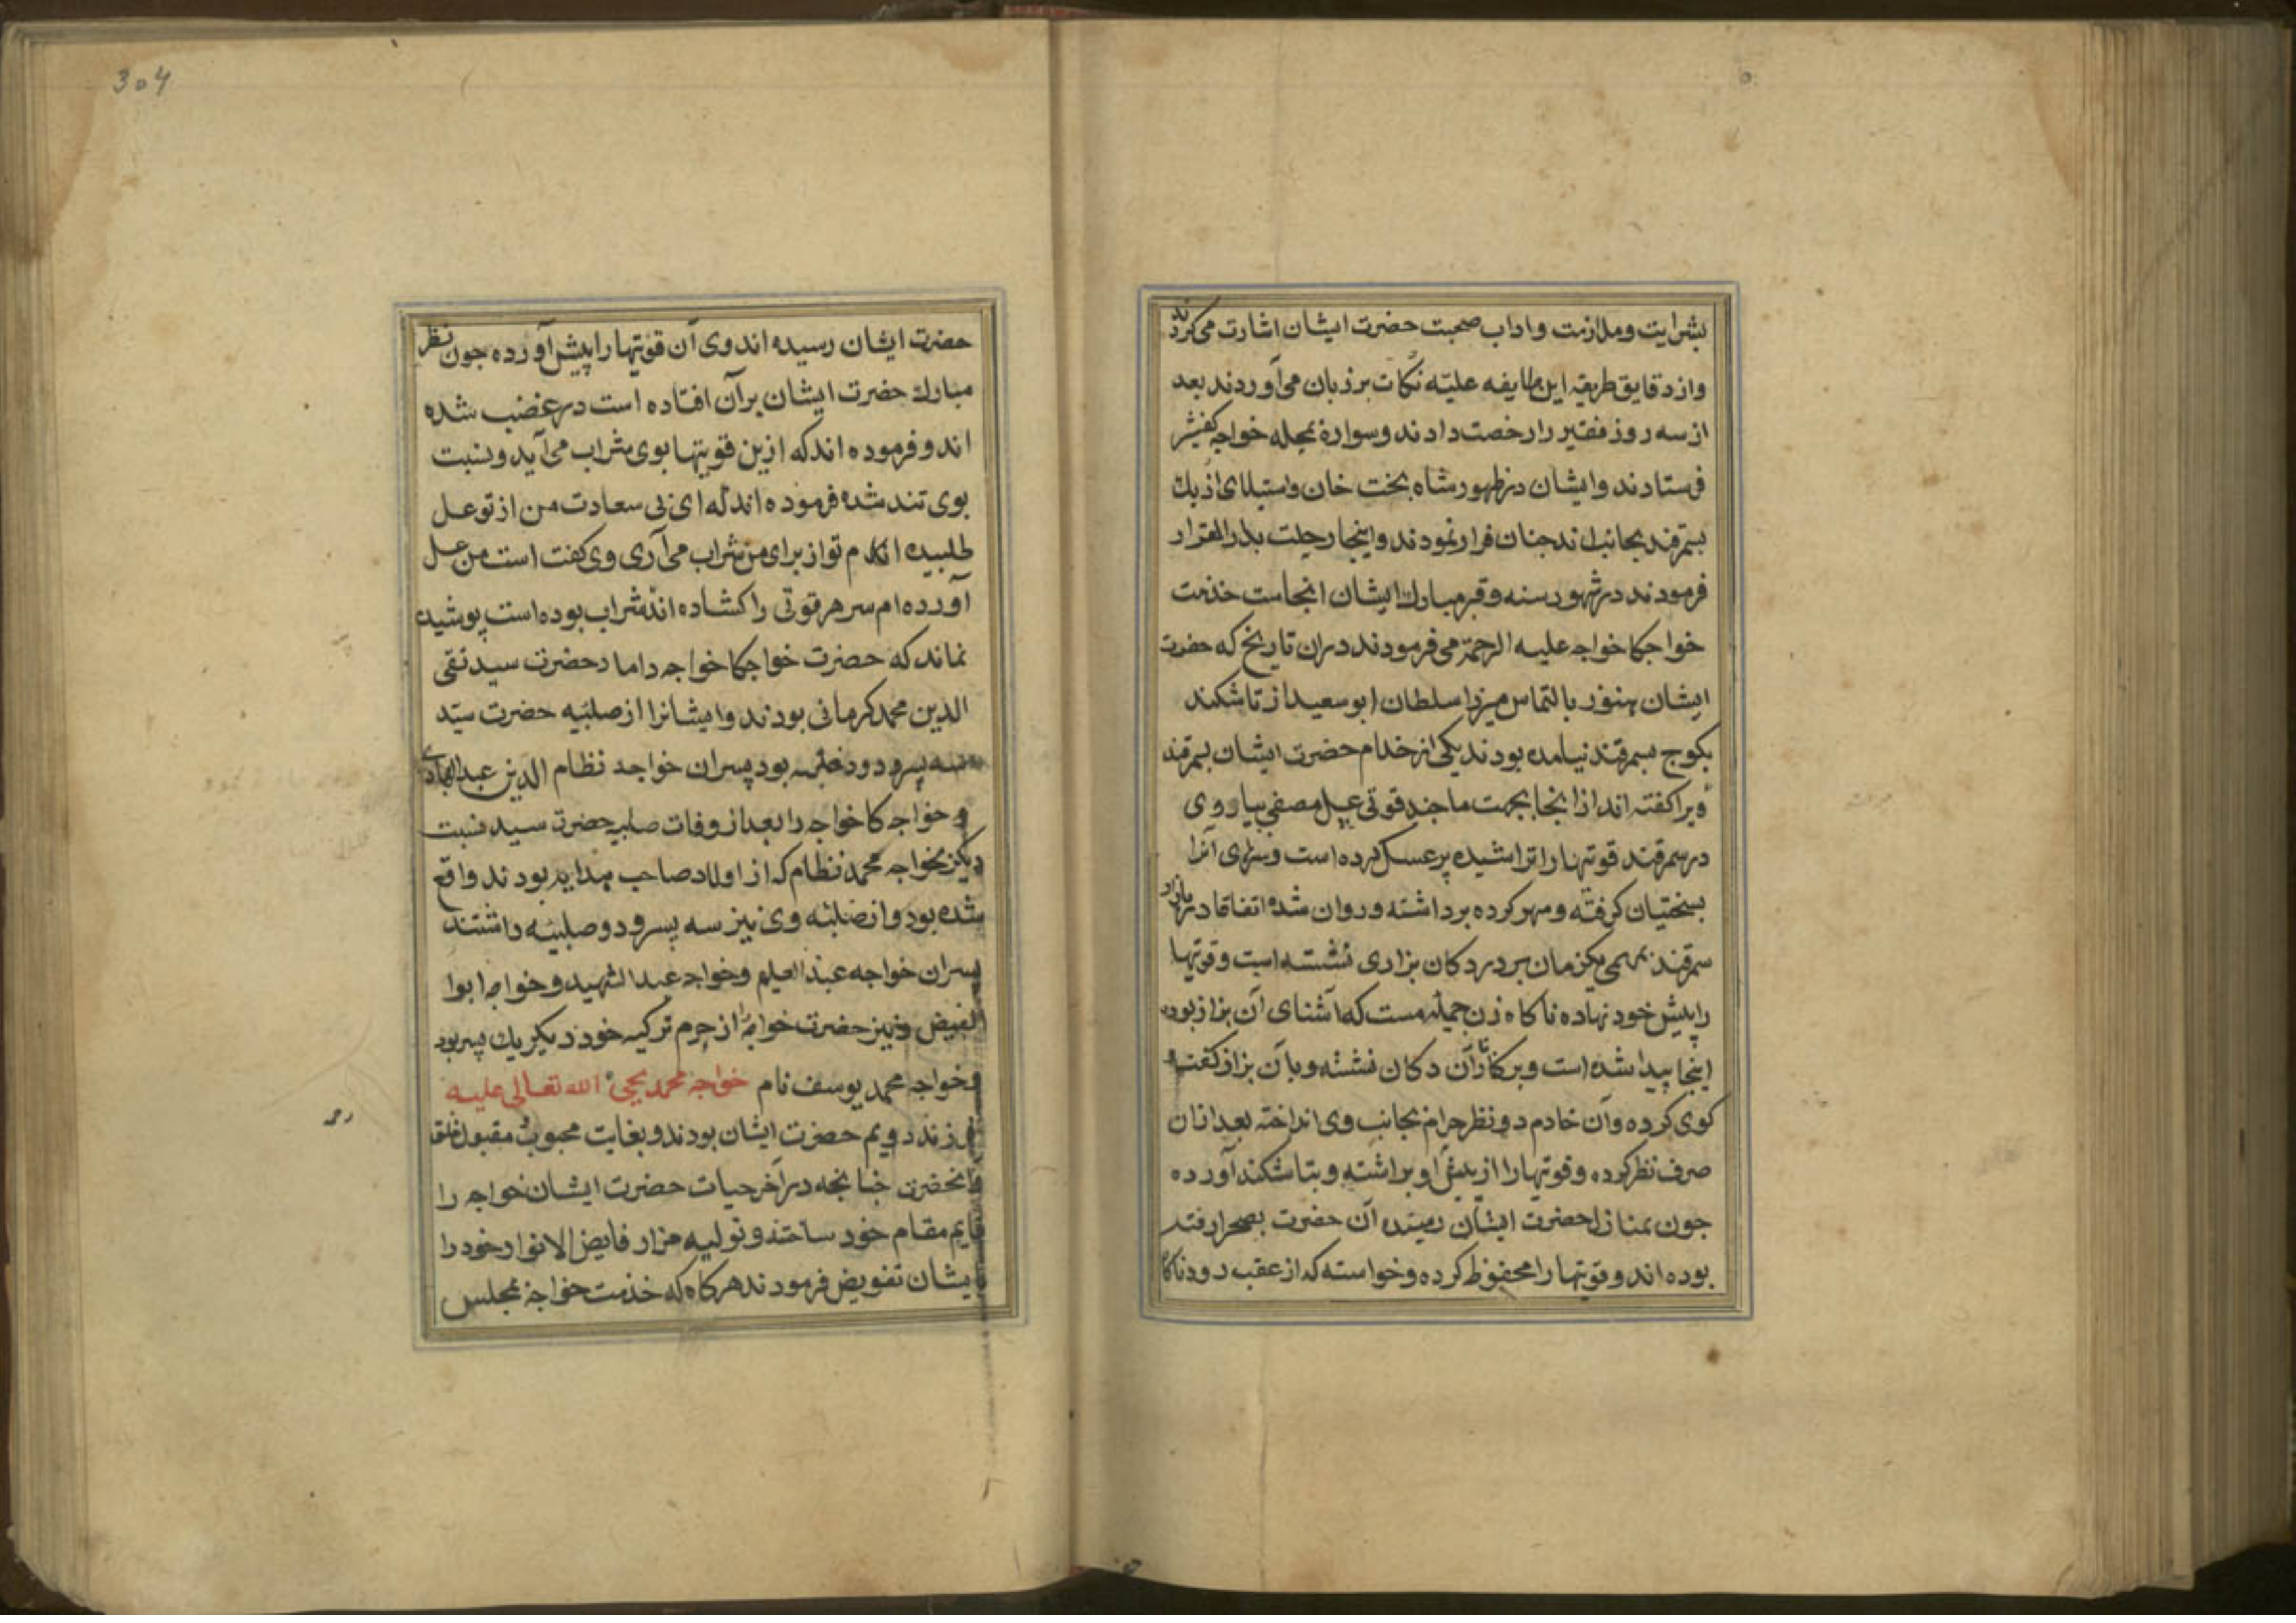 بشرایت وملازمت واداب صحبت حضرت ایشان اشارت می‌کردند
واز دقایق طریقه این طایفه علیّه نکات بر زبان می‌آوردند بعد
از سه روز فقیر را رخصت دادند وسواره بمحله خواجه کفشیر
فرستادند وایشان در ظهور شاه بخت خان واستیلای اذبك
بسمرقند بجانب اندجان فرار نمودند واینجا رحلت بدار القرار
فرمودند در شهور سنه وقبر مبارك ایشان انجاست خذمت
خواجکا خواجه علیه الرحمة می فرمودند دران تاریخ که حضرت
ایشان هنوز بالتماس میرزا سلطان ابو سعید از تاشکند
بکوج بسمرقند نیامده بودند یکی از خدام حضرت ایشان بسمرقند
ویرا کفته اند از انجا بجهت ما جند قوتی عسل مصفی بیار وی
در سمرقند قوتیها را تراشیده پر عسل کرده است وسرهای آنرا
بسختیان کرفته ومهر کرده برداشته وروان شده اتفاقا در بازار
سمرقند بمهمی یکزمان بر در دکان بزاری نشسته است وقوتیها
را پیش خود نهاده ناکاه زن جمیله مست که آشنای آن بزاز بوده
اینجا پیدا شده است وبر کنار آن دکان نشسته وبا آن بزاز کفت و
کوی کرده وآن خادم دو نظر حرام بجانب وی انداخته بعد ازان
صرف نظر کرده وقوتیها را از پیش او برداشته وبتاشکند آورده
جون بمنازل حضرت ایشان رسیده آن حضرت بصحرا رفته
بوده اند وقوتیها را محفوظ کرده وخواسته که از عقب رود ناکاه
304
حضرت ایشان رسیده اند وی آن قوتیها را پیش آورده جون نظر
مبارك حضرت ایشان بر آن افتاده است در غضب شده
اند وفرموده اند که ازین قوتیها بوی شراب می آید وبنسبت
بوی تند شده فرموده اند که ای بی سعادت من از تو عسل
طلبیده ام تو از برای من شراب می آری وی کفت است من عسل
آورده ام سر هر قوتی را کشاده اند شراب بوده است پوشیده
نماند که حضرت خواجکا خواجه داماد حضرت سید تقی
الدین محمد کرمانی بودند وایشانرا از صلبیه حضرت سیّد
سه پسر ودو دختر بود پسران خواجه نظام الدین عبد الهادی
و خواجه کا خواجه را بعد از وفات صلبیه حضرت سید نسبت
دیکر بخواجه محمد نظام که از اولاد صاحب هدایه بودند واقع
شده بود واز صلبیه وی نیز سه پسر ودو صلبیه داشتند
پسران خواجه عبد العلیم وخواجه عبد الشهید وخواجه ابوا
لفیض ونیز حضرت خواجه را از حرم ترکیه خود دیکر یك پسر بود
وخواجه محمد یوسف نام خواجه محمد یحیی الله تعالی علیه
رحمه
فرزند دویم حضرت ایشان بودند وبغایت محبوب ومقبول
آنحضرت جنانجه در آخر حیات حضرت ایشان خواجه را
قایم مقام خود ساختند وتولیه مزار فایض الانوار خود را
بایشان تفویض فرمودند هرکاه که خذمت خواجه بمجلس